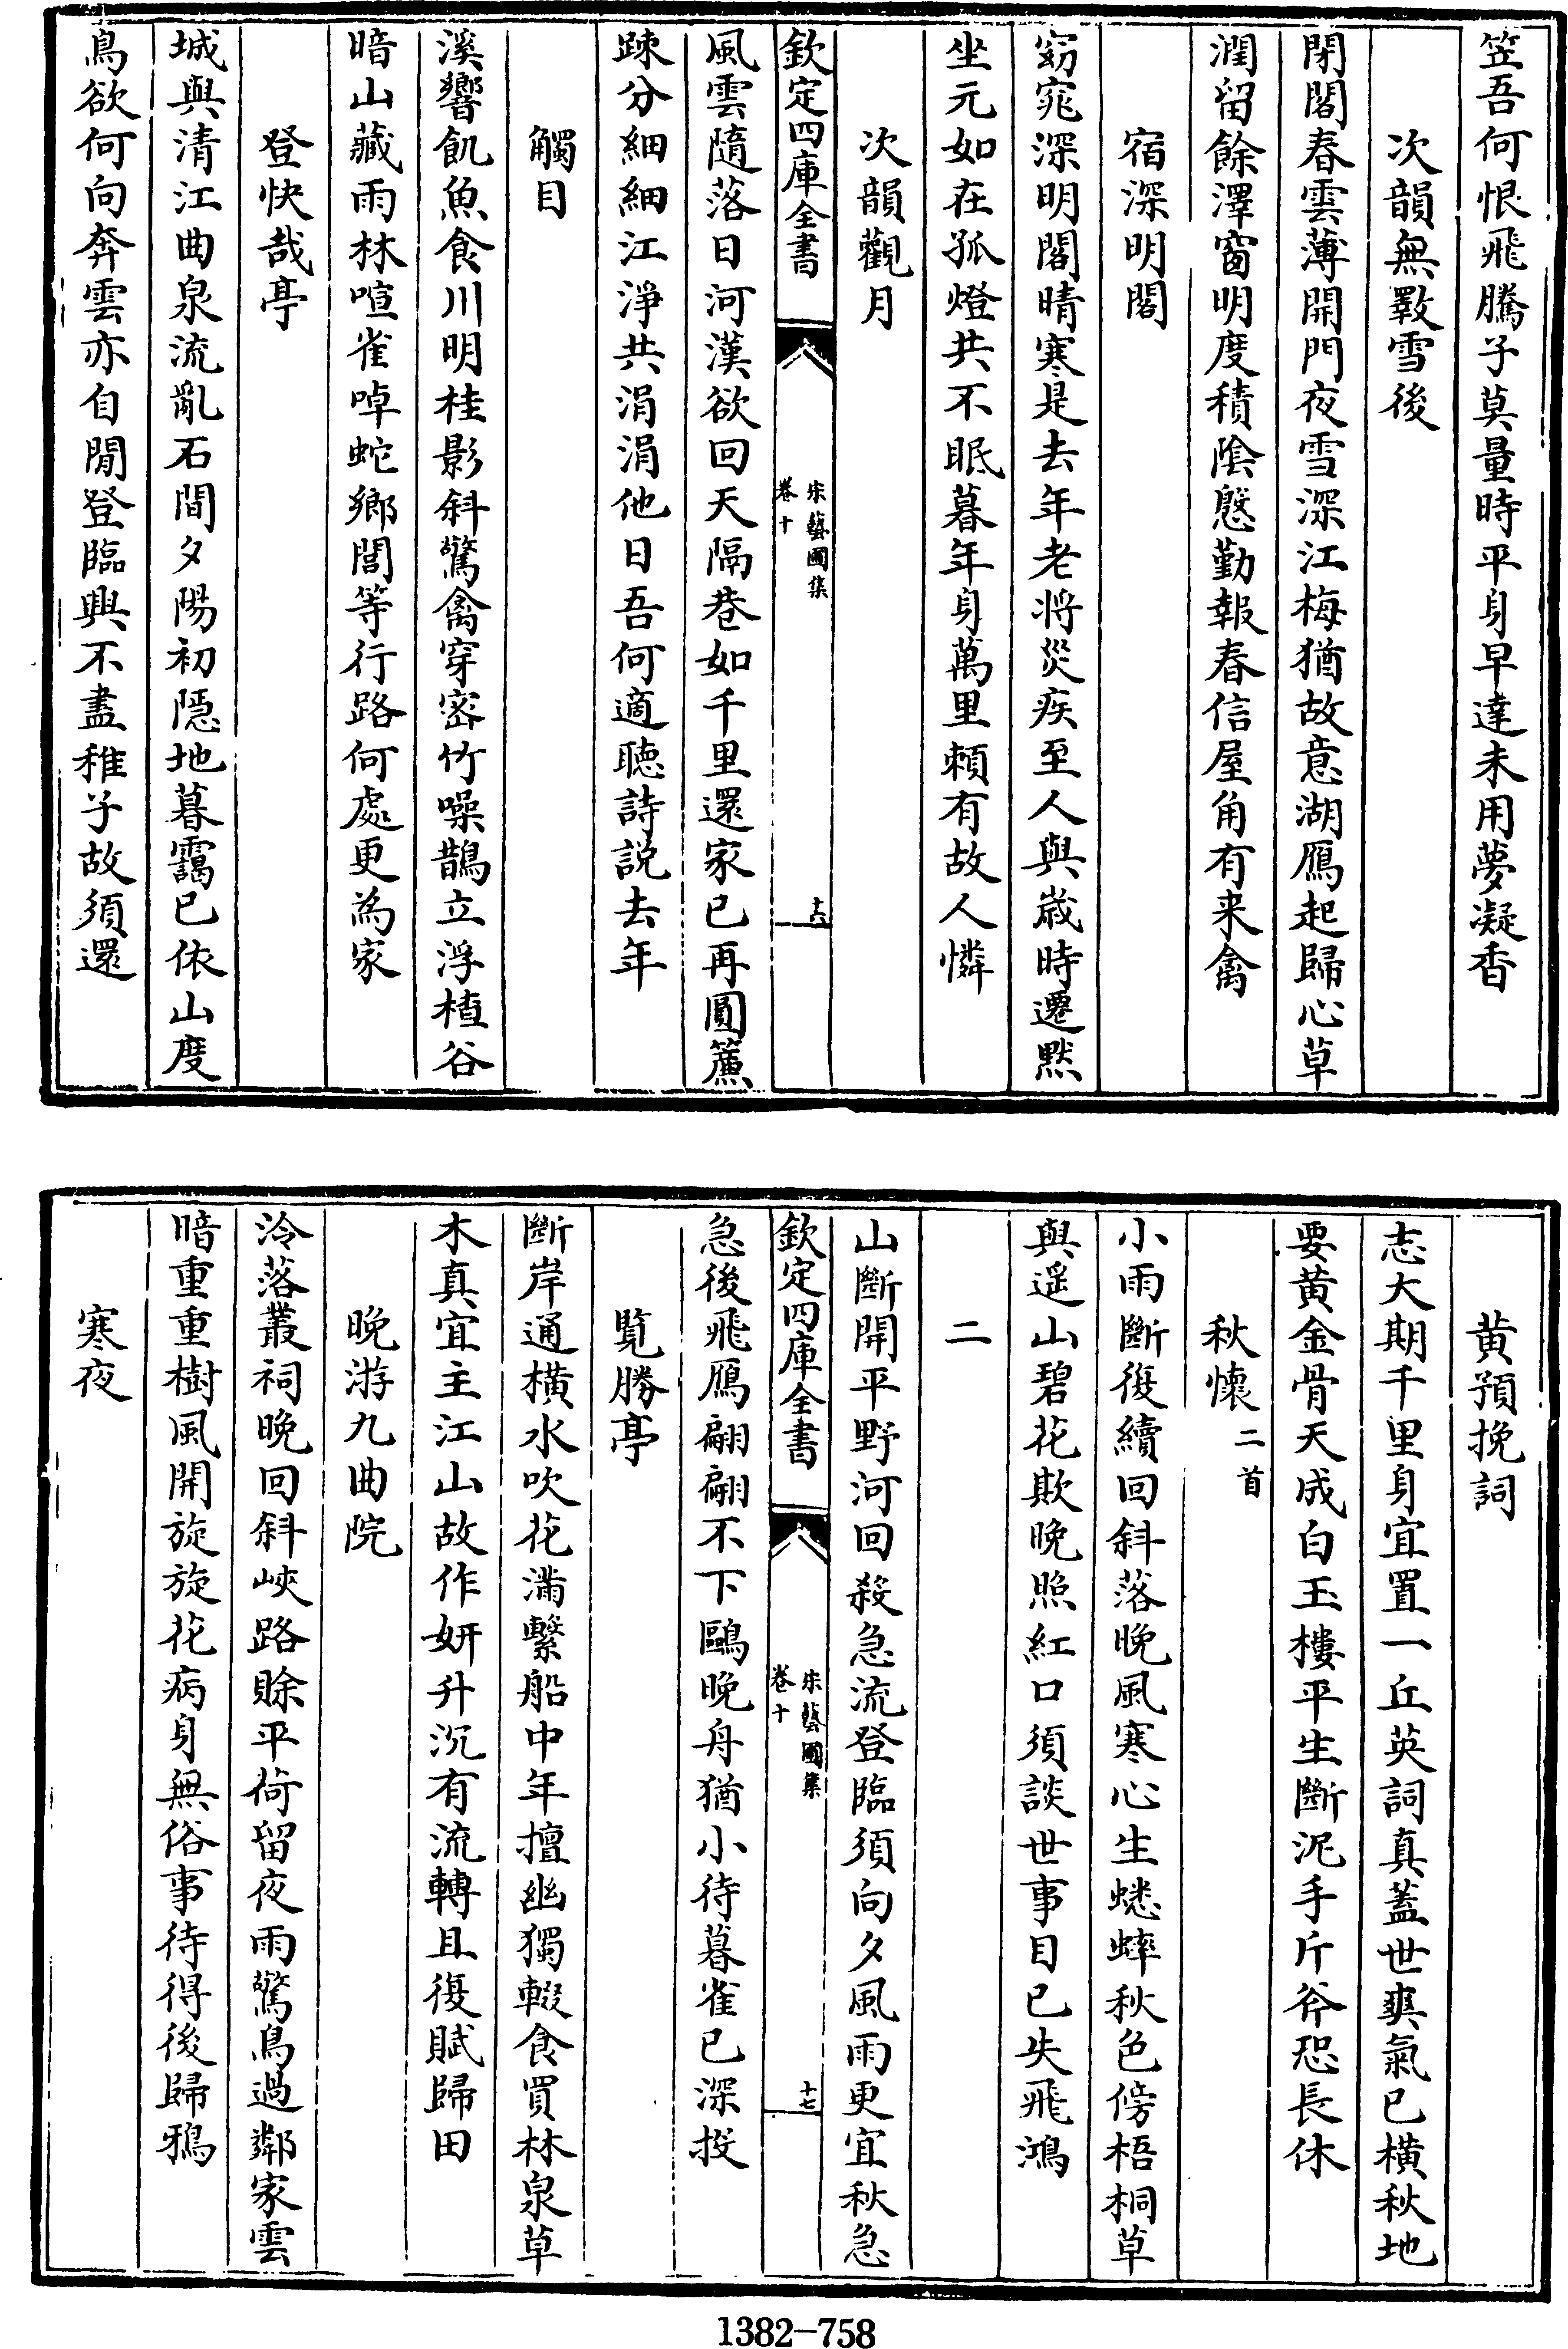 笠吾何恨飛騰子莫量時平身早達未用夢凝香
次韻無斁雪後
閉閣春雲薄開門夜雪深江梅猶故意湖鴈起歸心草
潤留餘澤窗明度積陰慇勤報春信屋角有来禽
宿深明閣
窈窕深明閣晴寒是去年老將災疾至人與嵗時遷黙
坐元如在孤燈共不眠暮年身萬里頼有故人憐
次韻觀月
欽定四庫全書
宋藝圃集
卷十
十六
風雲隨落日河漢欲回天隔巷如千里還家已再圓簾
踈分細細江淨共涓涓他日吾何適聽詩説去年
觸目
溪響飢魚食川明桂影斜驚禽穿密竹噪鵲立浮楂谷
暗山藏雨林喧雀啅蛇鄉閭等行路何處更為家
登快哉亭
城與清江曲泉流亂石間夕陽初隱地暮靄已依山度
鳥欲何向奔雲亦自閒登臨興不盡稚子故須還
黄預挽詞
志大期千里身宜置一丘英詞真蓋世爽氣已横秋地
要黄金骨天成白玉樓平生斷泥手斤斧恐長休
秋懷二首
小雨斷復續回斜落晚風寒心生蟋蟀秋色傍梧桐草
與遥山碧花欺晚照紅口須談世事目已失飛鴻
二
山斷開平野河回殺急流登臨須向夕風雨更宜秋急
欽定四庫全書
宋藝圃集
卷十
十七
急後飛鴈翩翩不下鷗晚舟猶小待暮雀已深投
覽勝亭
斷岸通横水吹花滿繫船中年擅幽獨輟食買林泉草
木真宜主江山故作妍升沉有流轉且復賦歸田
晚游九曲院
泠落叢祠晚回斜峽路賖平荷留夜雨驚鳥過鄰家雲
暗重重樹風開旋旋花病身無俗事待得後歸鴉
寒夜
1382-758